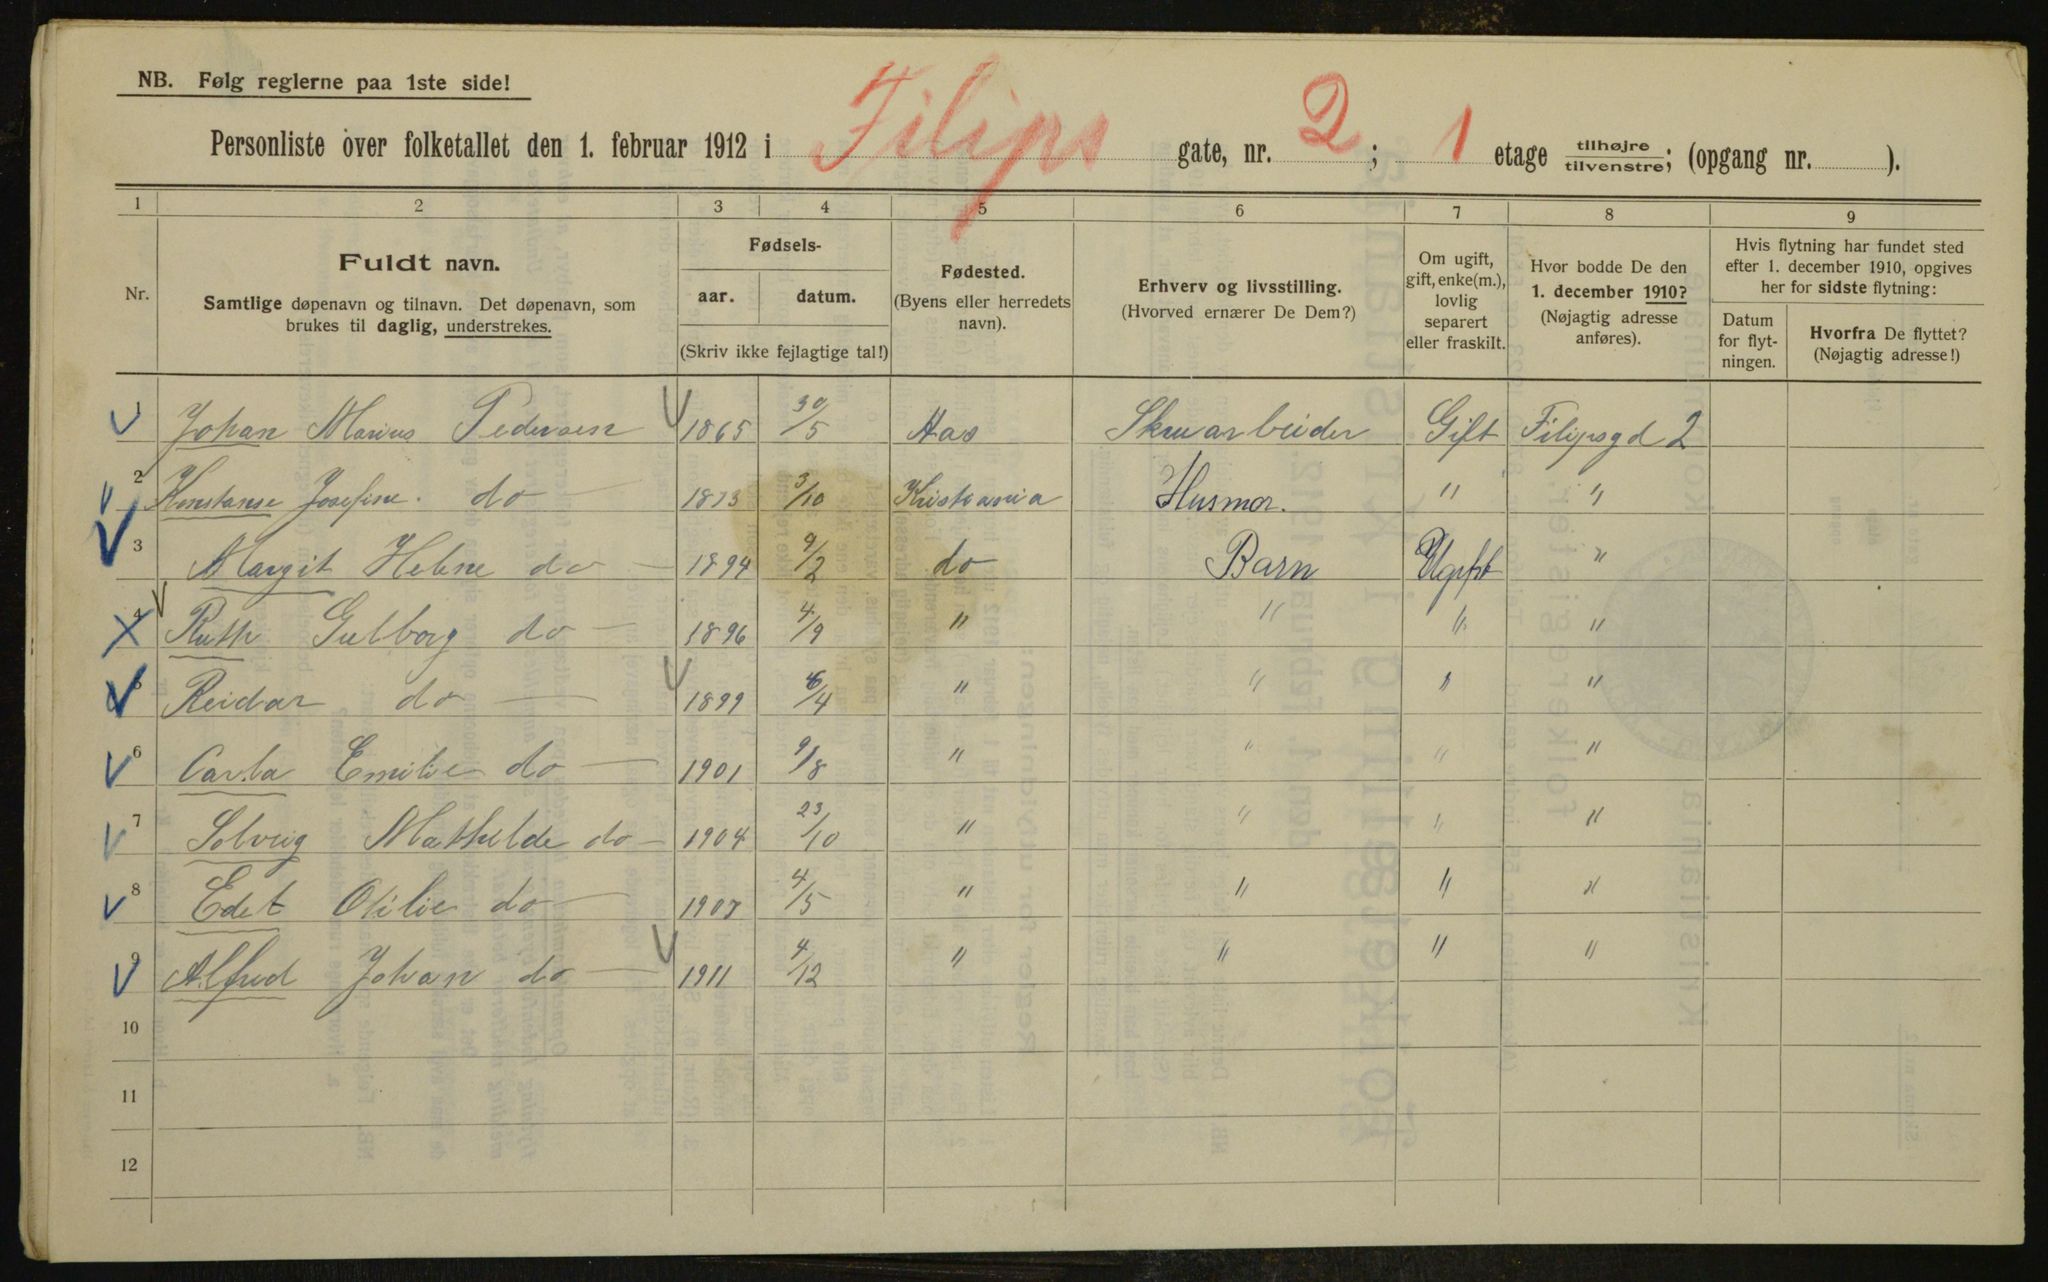 NB. Følg reglerne paa 1ste side!
Personliste over folketallet den 1. februar 1912 i Filips gate, nr. 2; 1 etage tilhøjre/tilvenstre; (opgang nr. ).
1 2 3 4 5 6 7 8 9
Nr.
Fuldt navn.
Samtlige døpenavn og tilnavn. Det døpenavn, som
brukes til daglig, understrekes.
Fødsels-
aar. datum.
(Skriv ikke fejlagtige tal!)
Fødested.
(Byens eller herredets
navn).
Erhverv og livsstilling.
(Hvorved ernærer De Dem?)
Om ugift,
gift, enke(m.),
lovlig
separert
eller fraskilt.
Hvor bodde De den
1. december 1910?
(Nøjagtig adresse
anføres).
Hvis flytning har fundet sted
efter 1. december 1910, opgives
her for sidste flytning:
Datum
for flyt-
ningen.
Hvorfra De flyttet?
(Nøjagtig adresse!)
1 Johan Marius Pedersen 1865 30/5 Aas Skruarbeider Gift Filipsgd 2
2 Konstanse Josefine. do 1873 3/10 Kristiania Husmor. " "
3 Margit Helene do 1894 9/2 do Barn Ugift "
4 Ruth Gulborg do 1896 4/9 " " " "
5 Reidar do 1899 6/4 " " " "
6 Carla Emilie do 1901 9/8 " " " "
7 Solveig Mathilde do 1904 23/10 " " " "
8 Edet Otilie do 1907 4/5 " " " "
9 Alfred Johan do 1911 4/12 " " " "
10
11
12